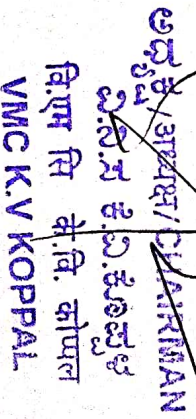 ಅಧ್ಯಕ್ಷ/अध्यक्ष/CHAIRMAN
ವಿ.ಎಂ.ಸಿ ಕೆ.ವಿ.ಕೊಪ್ಪಳ
वि.एम सि के.वि. कोप्पल
VMC K.V KOPPAL